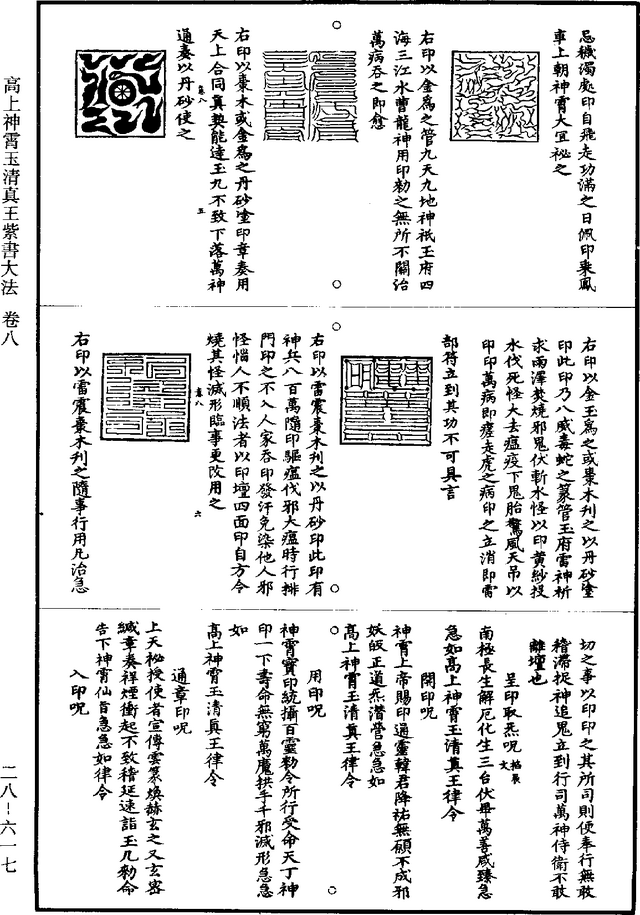 高上神霄玉清真王紫書大法　卷八
二八—六一七
忌穢濁處印自飛走功滿之日佩印乘鳳
車上朝神霄大宜祕之
右印以金爲之管九天九地神祇玉府四
海三江水曹龍神用印勑之無所不關治
萬病吞之即愈
右印以棗木或金爲之丹砂塗印章奏用
天上合同眞契能達玉九不致下落萬神
通奏以丹砂使之
卷八
五
右印以金玉爲之或棗木刋之以丹砂塗
印此印乃八威毒蛇之篆管玉府雷神祈
求雨澤焚燒邪鬼伏斬水怪以印黄紗投
水伐死怪大去瘟疫下鬼胎驚風天吊以
印印萬病即瘥走虎之病印之立消即雷
部符立到其功不可具言
右印以雷震棗木刋之以丹砂印此印有
神兵八百萬隨印驅瘟伐邪大瘟時行排
門印之不入人家吞印發汗免染他人邪
怪惱人不順法者以印壇四面印自方令
燒其怪滅形臨事更改用之
卷八
六
右印以雷震棗木刋之隨事行用凡治急
切之事以印印之其所司則便奉行無敢
稽滯捉神追鬼立到行司萬神侍衛不敢
離壇也
呈印取炁呪 掐辰文
南極長生解厄化生三台伏畢萬善咸臻急
急如高上神霄玉清眞王律令
開印呪
神霄上帝賜印通靈韓君降祐無願不成邪
妖皈正道炁潛營急急如
高上神霄玉清眞王律令
用印呪
神霄寶印統攝百靈勑令所行受命天丁神
印一下壽命無窮萬魔拱手千邪滅形急急
如
高上神霄玉清眞王律令
通章印呪
上天祕授使者宣傳雲篆煥赫玄之又玄密
緘章奏祥煙衝起不致稽延速詣玉几勑命
告下神霄仙音急急如律令
入印呪